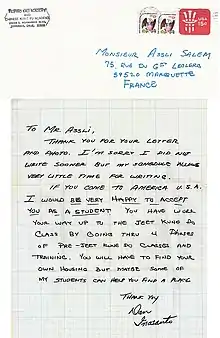 MONSIEUR ASSLI SALEM
75, RUE DU Gᵃˡ LECLERC
59520 MARQUETTE
FRANCE
USA
15c
TO MR ASSLI,
THANK YOU FOR YOUR LETTER
AND PHOTO. I'M SORRY I DID NOT
WRITE SOONER BUT MY SCHEDULE
VERY LITTLE TIME FOR WRITING.
IF YOU COME TO AMERICA U.S.A.
I WOULD BE VERY HAPPY TO ACCEPT
YOU AS A STUDENT YOU HAVE WORK
YOUR WAY UP TO THE JEET KUNE DO
CLASS BY GOING THRU 4 PHASES
OF PRE-JEET KUNE DO CLASSES AND
TRAINING. YOU WILL HAVE TO FIND YOUR
OWN HOUSING BUT MAYBE SOME OF
MY STUDENTS CAN HELP YOU FIND A PLACE
THANK YOU
Dan
Inosanto